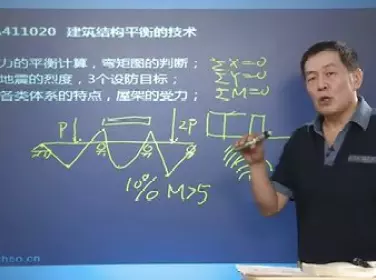 411020 建筑结构平衡的技术
力的平衡计算，弯矩图的判断；
地震的烈度，3个设防目标；
各类体系的特点，屋架的受力；
ΣX=0
ΣY=0
ΣM=0
P
2P
10%
M>5
hso.cn